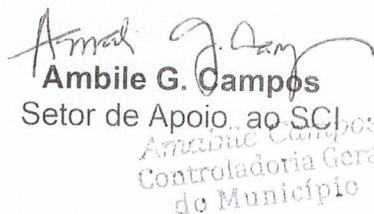 Ambile G. Campos
Setor de Apoio ao SCI
Amabile Campos
Controladoria Gera
do Município